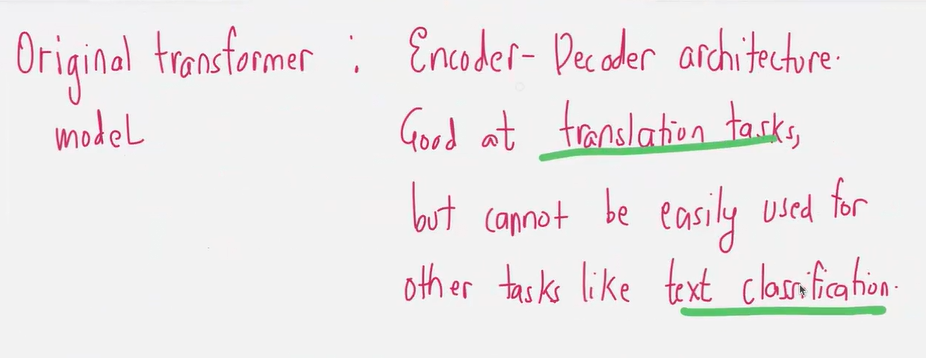 Original transformer : Encoder-Decoder architecture.
model Good at translation tasks,
but cannot be easily used for
other tasks like text classification.